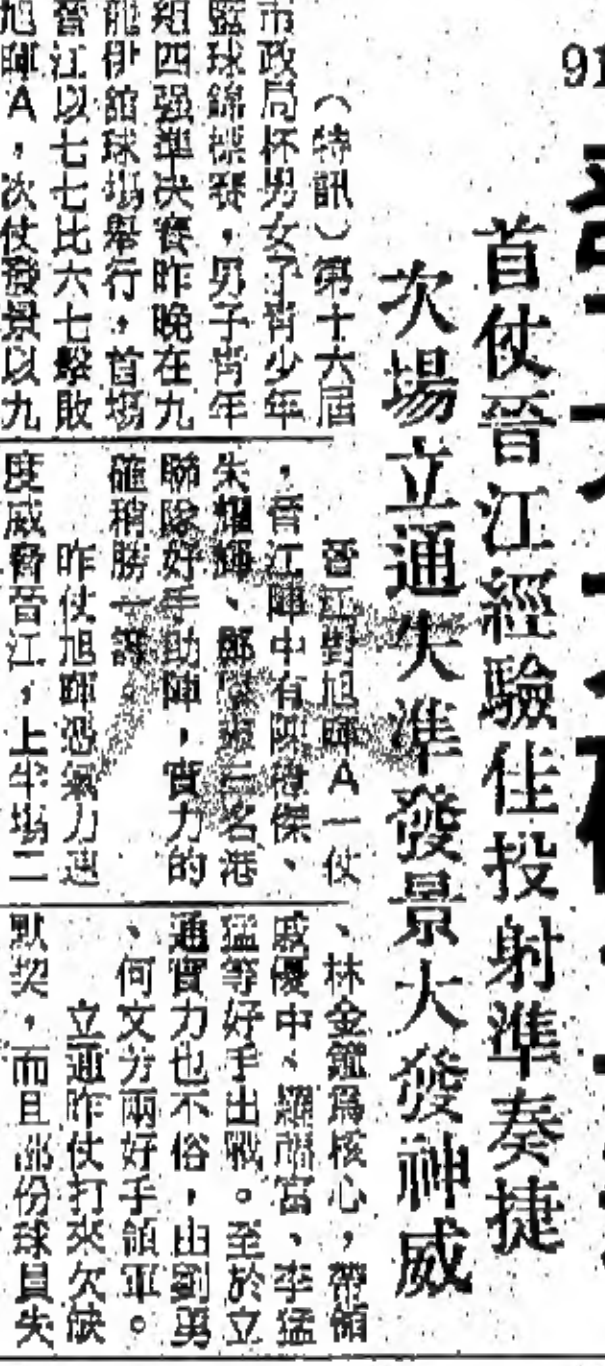 91
首仗晉江經驗佳投射準奏捷
次場立通失準發景大發神威
（特訊）第十六屆
市政局杯男女子青少年
籃球錦標賽，男子青年
組四强準決賽昨晚在九
龍伊館球場舉行，首場
晉江以七七比六七擊敗
旭暉A，次仗發景以九
晉江對旭暉A一仗
，晉江陣中有陳傑、
朱耀輝、鄭三名港
聯隊好手助陣，實力的
確稍勝一籌。
昨仗旭暉憑氣力速
度威脅晉江，上半場二
、林金鑑爲核心，帶領
戚優中、羅富、李猛
猛等好手出戰。至於立
通實力也不俗，由劉勇
、何文方兩好手領軍。
立通昨仗打來欠缺
默契，而且部份球員失